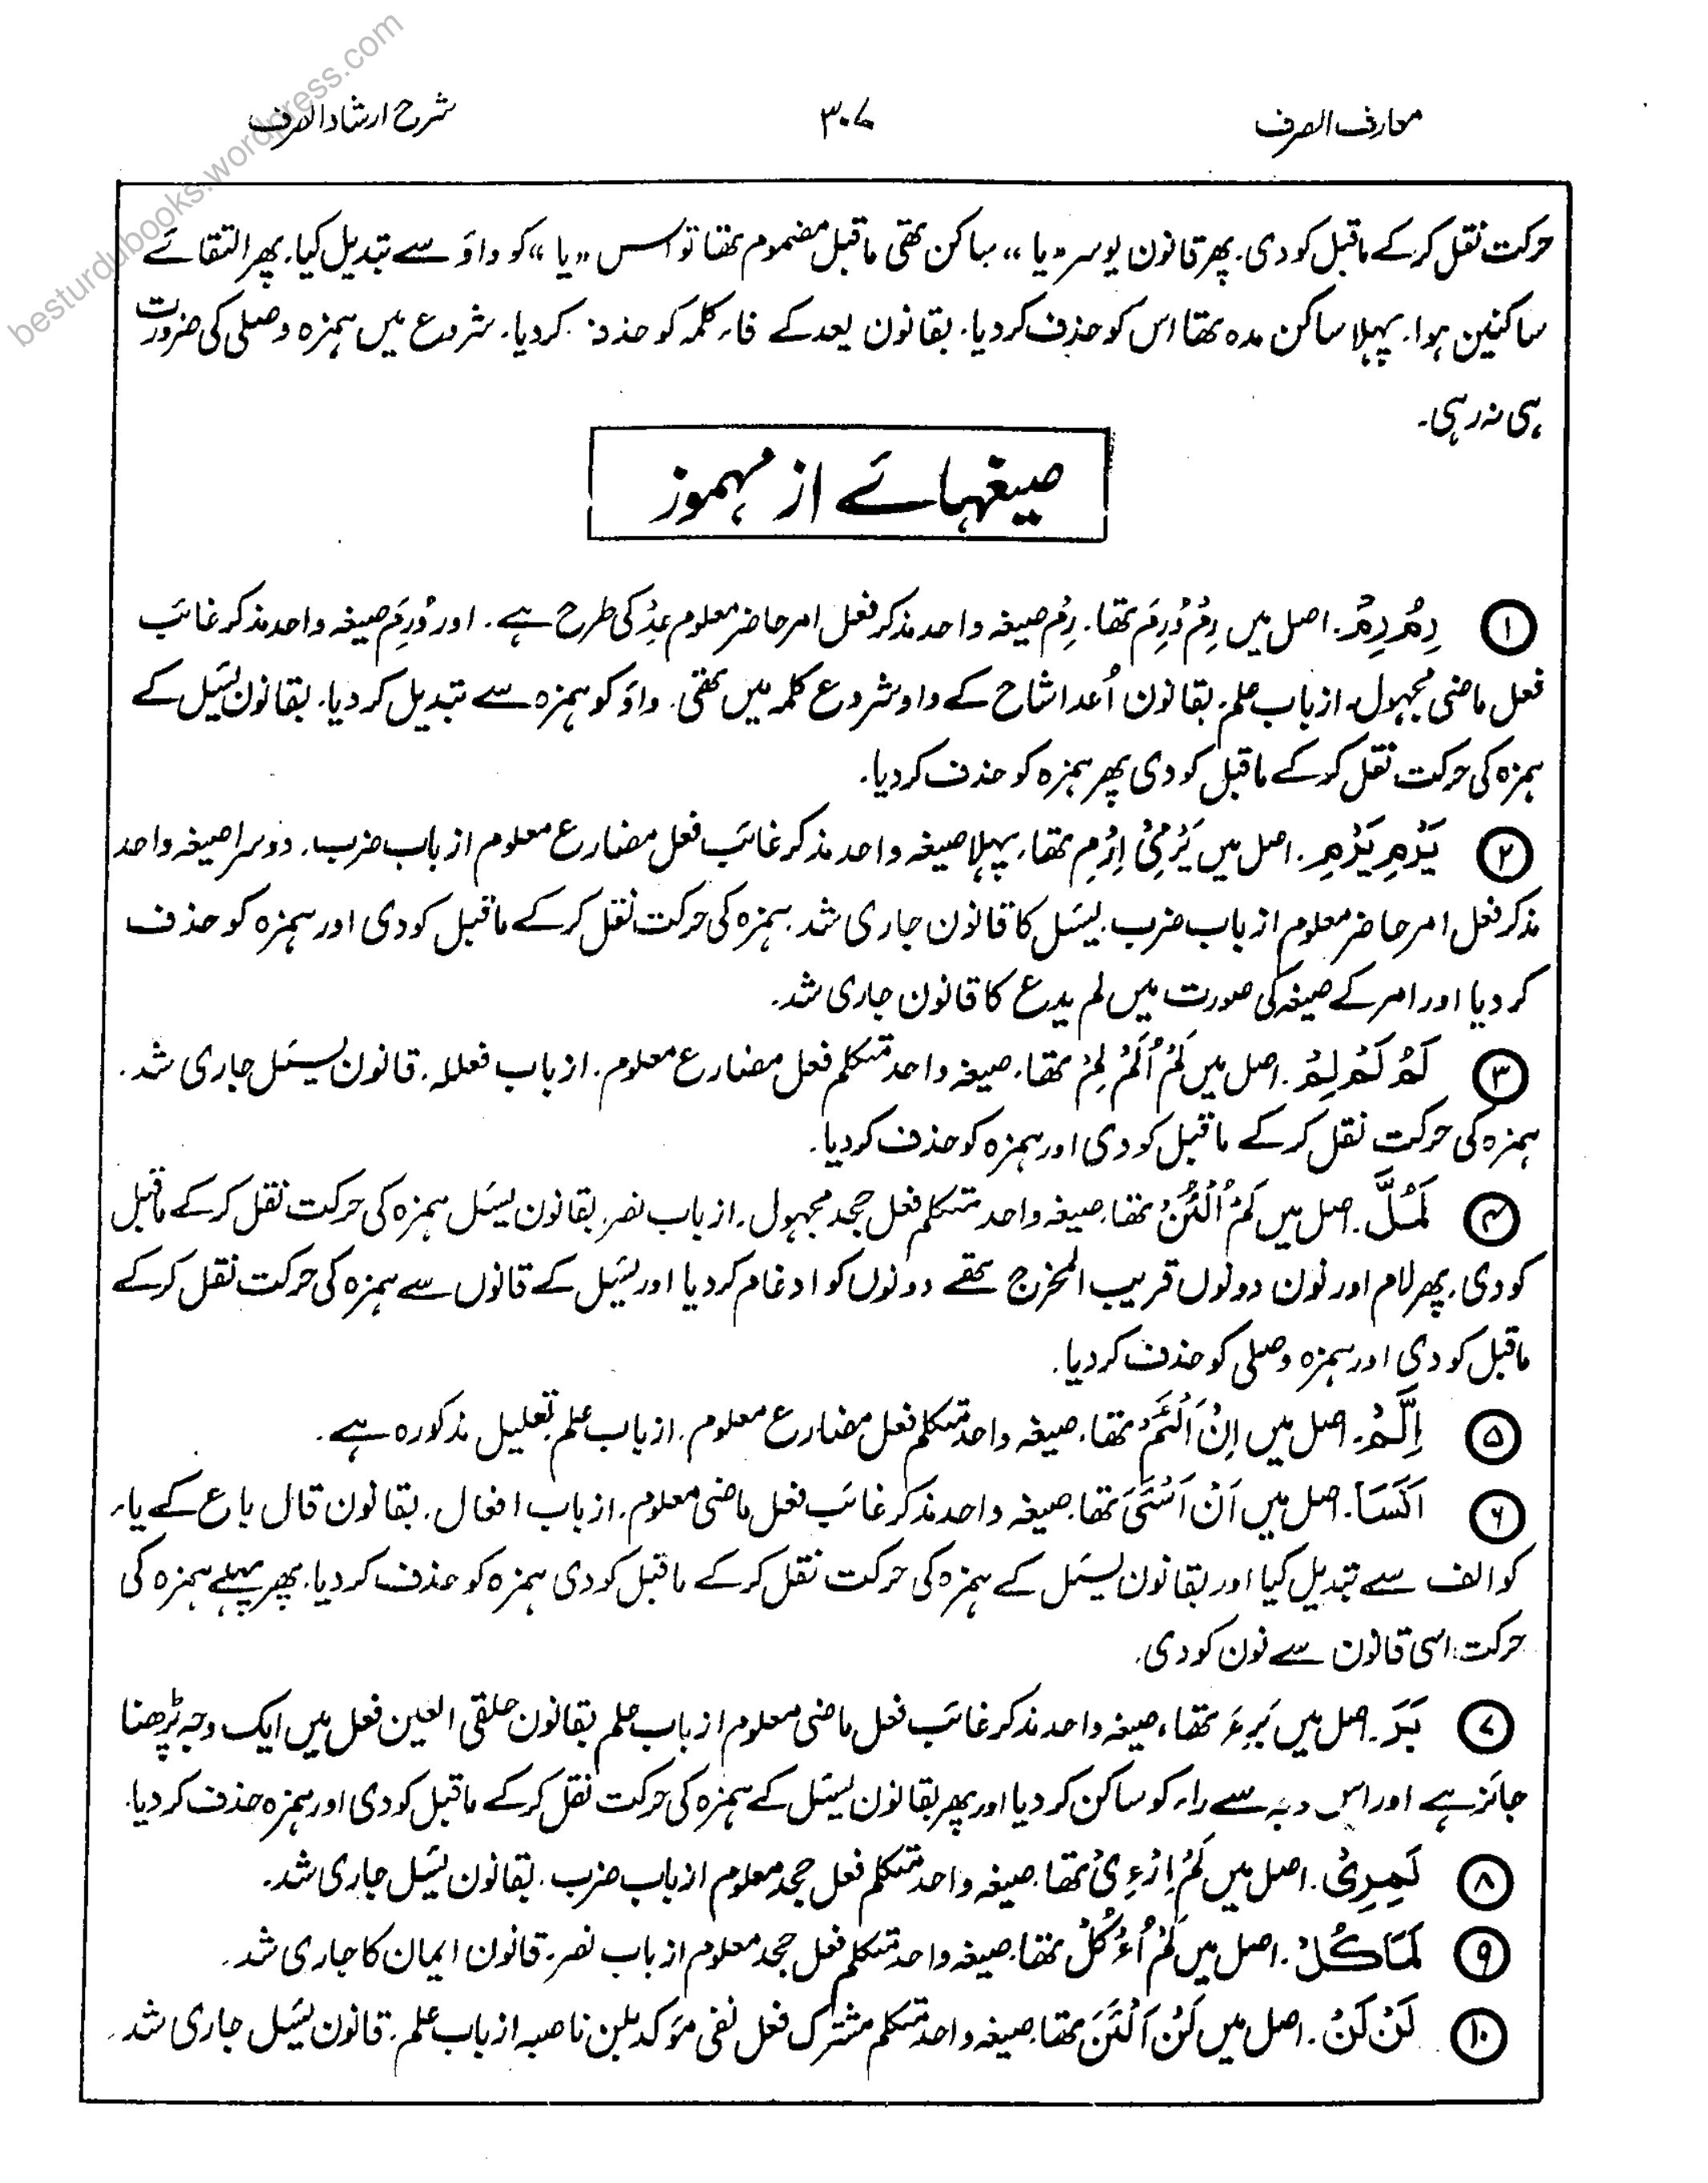 معارف الصرف
۳۰۷
شرح ارشاد الصرف
besturdubooks.wordpress.com
حرکت نقل کر کے ماقبل کو دی. پھر قانون یوسر «یا» ساکن تھی ماقبل مضموم تھا تو اس «یا» کو واؤ سے تبدیل کیا. پھر التقائے
ساکنین ہوا. پہلا ساکن مدہ تھا اس کو حذف کر دیا. بقانون یعد کے فاء کلمہ کو حذف کر دیا. شروع میں ہمزہ وصلی کی ضرورت
ہی نہ رہی.
صیغہائے از مہموز
① رِمُرِمَ. اصل میں رِمْ وُرِمَ تھا. رِمْ صیغہ واحد مذکر فعل امر حاضر معلوم عِدْ کی طرح ہے. اور وُرِمَ صیغہ واحد مذکر غائب
فعل ماضی مجہول. از باب علم. بقانون اُعد اشاح کے واو شروع کلمہ میں تھی. واؤ کو ہمزہ سے تبدیل کر دیا. بقانون یَسَل کے
ہمزہ کی حرکت نقل کر کے ماقبل کو دی پھر ہمزہ کو حذف کر دیا.
② یَرْمِ یَرْمِ. اصل میں یَرْمِیْ اِرْمِ تھا. پہلا صیغہ واحد مذکر غائب فعل مضارع معلوم از باب ضرب. دوسرا صیغہ واحد
مذکر فعل امر حاضر معلوم از باب ضرب. یسَل کا قانون جاری شد. ہمزہ کی حرکت نقل کر کے ماقبل کو دی اور ہمزہ کو حذف
کر دیا اور امر کے صیغہ کی صورت میں لم یدع کا قانون جاری شد.
③ لَمُ لَمْ لِمْ. اصل میں لَمْ اُلَمْ لِمْ تھا. صیغہ واحد متکلم فعل مضارع معلوم. از باب فعللہ. قانون یسَل جاری شد.
ہمزہ کی حرکت نقل کر کے ماقبل کو دی اور ہمزہ کو حذف کر دیا.
④ لَمُلَّ. اصل میں لَمْ اُلْئَنْ تھا. صیغہ واحد متکلم فعل جحد مجہول. از باب نصر. بقانون یسَل ہمزہ کی حرکت نقل کر کے ماقبل
کو دی. پھر لام اور نون دونوں قریب المخرج تھے دونوں کو ادغام کر دیا اور یسَل کے قانوں سے ہمزہ کی حرکت نقل کر کے
ماقبل کو دی اور ہمزہ وصلی کو حذف کر دیا.
⑤ اِلَّمْ. اصل میں اِنْ اَلْئَمْ تھا. صیغہ واحد متکلم فعل مضارع معلوم. از باب علم. تعلیل مذکورہ ہے.
⑥ اَنَسَا. اصل میں اَنْ اَسْئَیَ تھا. صیغہ واحد مذکر غائب فعل ماضی معلوم. از باب افعال. بقانون قال باع کے یاء
کو الف سے تبدیل کیا اور بقانون یسَل کے ہمزہ کی حرکت نقل کر کے ماقبل کو دی ہمزہ کو حذف کر دیا. پھر پہلے ہمزہ کی
حرکت اسی قانون سے نون کو دی.
⑦ بَرَ. اصل میں بَرِءَ تھا، صیغہ واحد مذکر غائب فعل ماضی معلوم از باب علم بقانون حلقی العین فعل میں ایک وجہ پڑھنا
جائز ہے اور اس وجہ سے راء کو ساکن کر دیا اور پھر بقانون یسَل کے ہمزہ کی حرکت نقل کر کے ماقبل کو دی اور ہمزہ حذف کر دیا.
⑧ لَمِرِیْ. اصل میں لَمْ اِرْءِیْ تھا. صیغہ واحد متکلم فعل جحد معلوم از باب ضرب. بقانون یسَل جاری شد.
⑨ لَمَاکُلْ. اصل میں لَمْ اُءْکُلْ تھا. صیغہ واحد متکلم فعل جحد معلوم از باب نصر. قانون ایمان کا جاری شد.
⑩ لَنَ لَنَ. اصل میں لَنْ اَلْئَنَ تھا. صیغہ واحد متکلم مشترک فعل نفی مؤکد بلن ناصبہ از باب علم. قانون یسَل جاری شد.